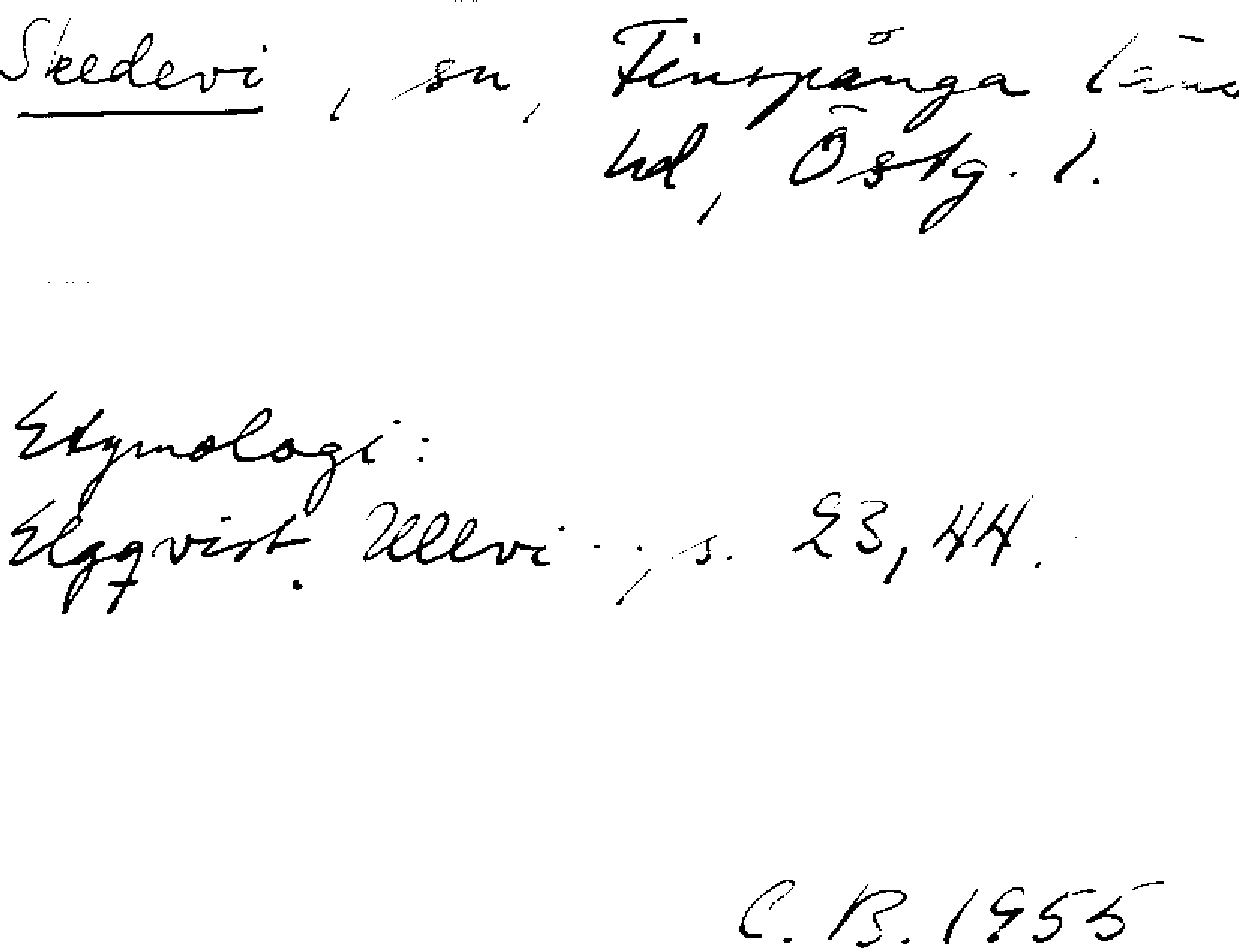 Skedevi, sn, Finspånga läns
hd, Östg. l.
Etymologi:
Elgqvist. Ullvi..., s. 23, 44.
C. B. 1955